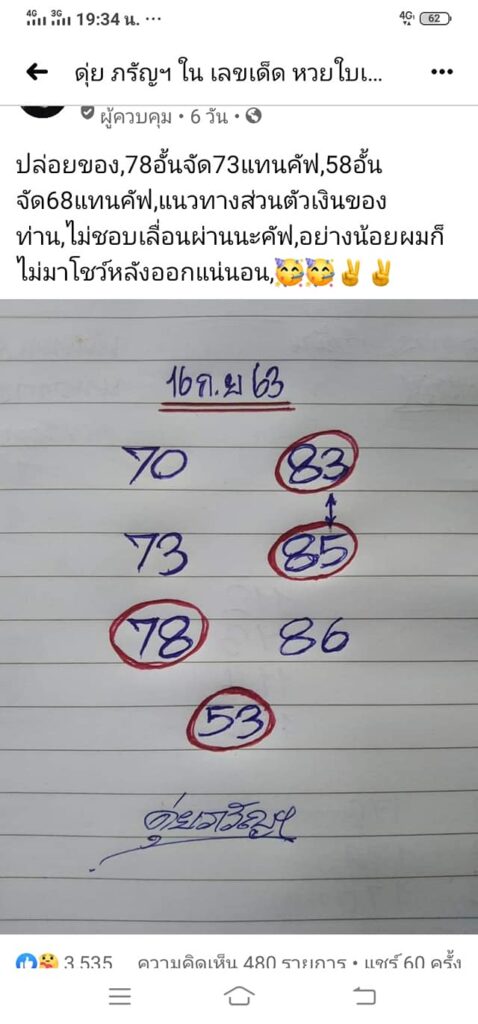 4G 3G 19:34 น. ...
4G 62
ดุ่ย ภรัญฯ ใน เลขเด็ด หวยใบเ...
ผู้ควบคุม • 6 วัน •
ปล่อยของ,78อั้นจัด73แทนคัฟ,58อั้น
จัด68แทนคัฟ,แนวทางส่วนตัวเงินของ
ท่าน,ไม่ชอบเลื่อนผ่านนะคัฟ,อย่างน้อยผมก็
ไม่มาโชว์หลังออกแน่นอน,🥳🥳✌️✌️
16 ก.ย 63
70 83
73 85
78 86
53
ดุ่ยภรัญฯ
3,535 ความคิดเห็น 480 รายการ • แชร์ 60 ครั้ง